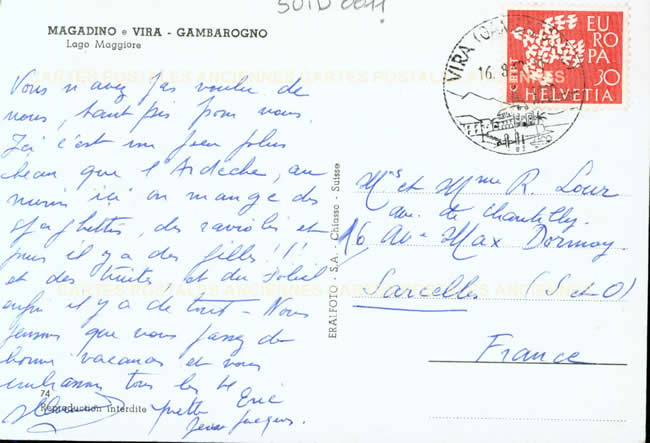 SUID0011
MAGADINO e VIRA - GAMBAROGNO
Lago Maggiore
CARTES POSTALES ANCIENNES CARTES POSTALES ANCIENNES
Vous n'avez pas voulu de
nous, tant pis pour vous.
Ici c'est un peu plus
beau que l'Ardèche, au
moins ici on mange des
spaghettis, des raviolis et
puis il y a des filles!!!
et des truites et du soleil
enfin il y a de tout - Nous
pensons que vous passez de
bonnes vacances et vous
embrassons tous les 4
Yvette Eric
Jean Jacques.
74
Reproduction interdite
ERALFOTO - S.A. - Chiasso - Suisse
VIRA
16.8.
EUROPA
30
HELVETIA
et Mme R. Lour
av. de Chantilly.
16 Ave Max Dormoy.
CARTES POSTALES ANCIENNES CARTES POSTALES ANCIENNES
Sarcelles (S et O)
France